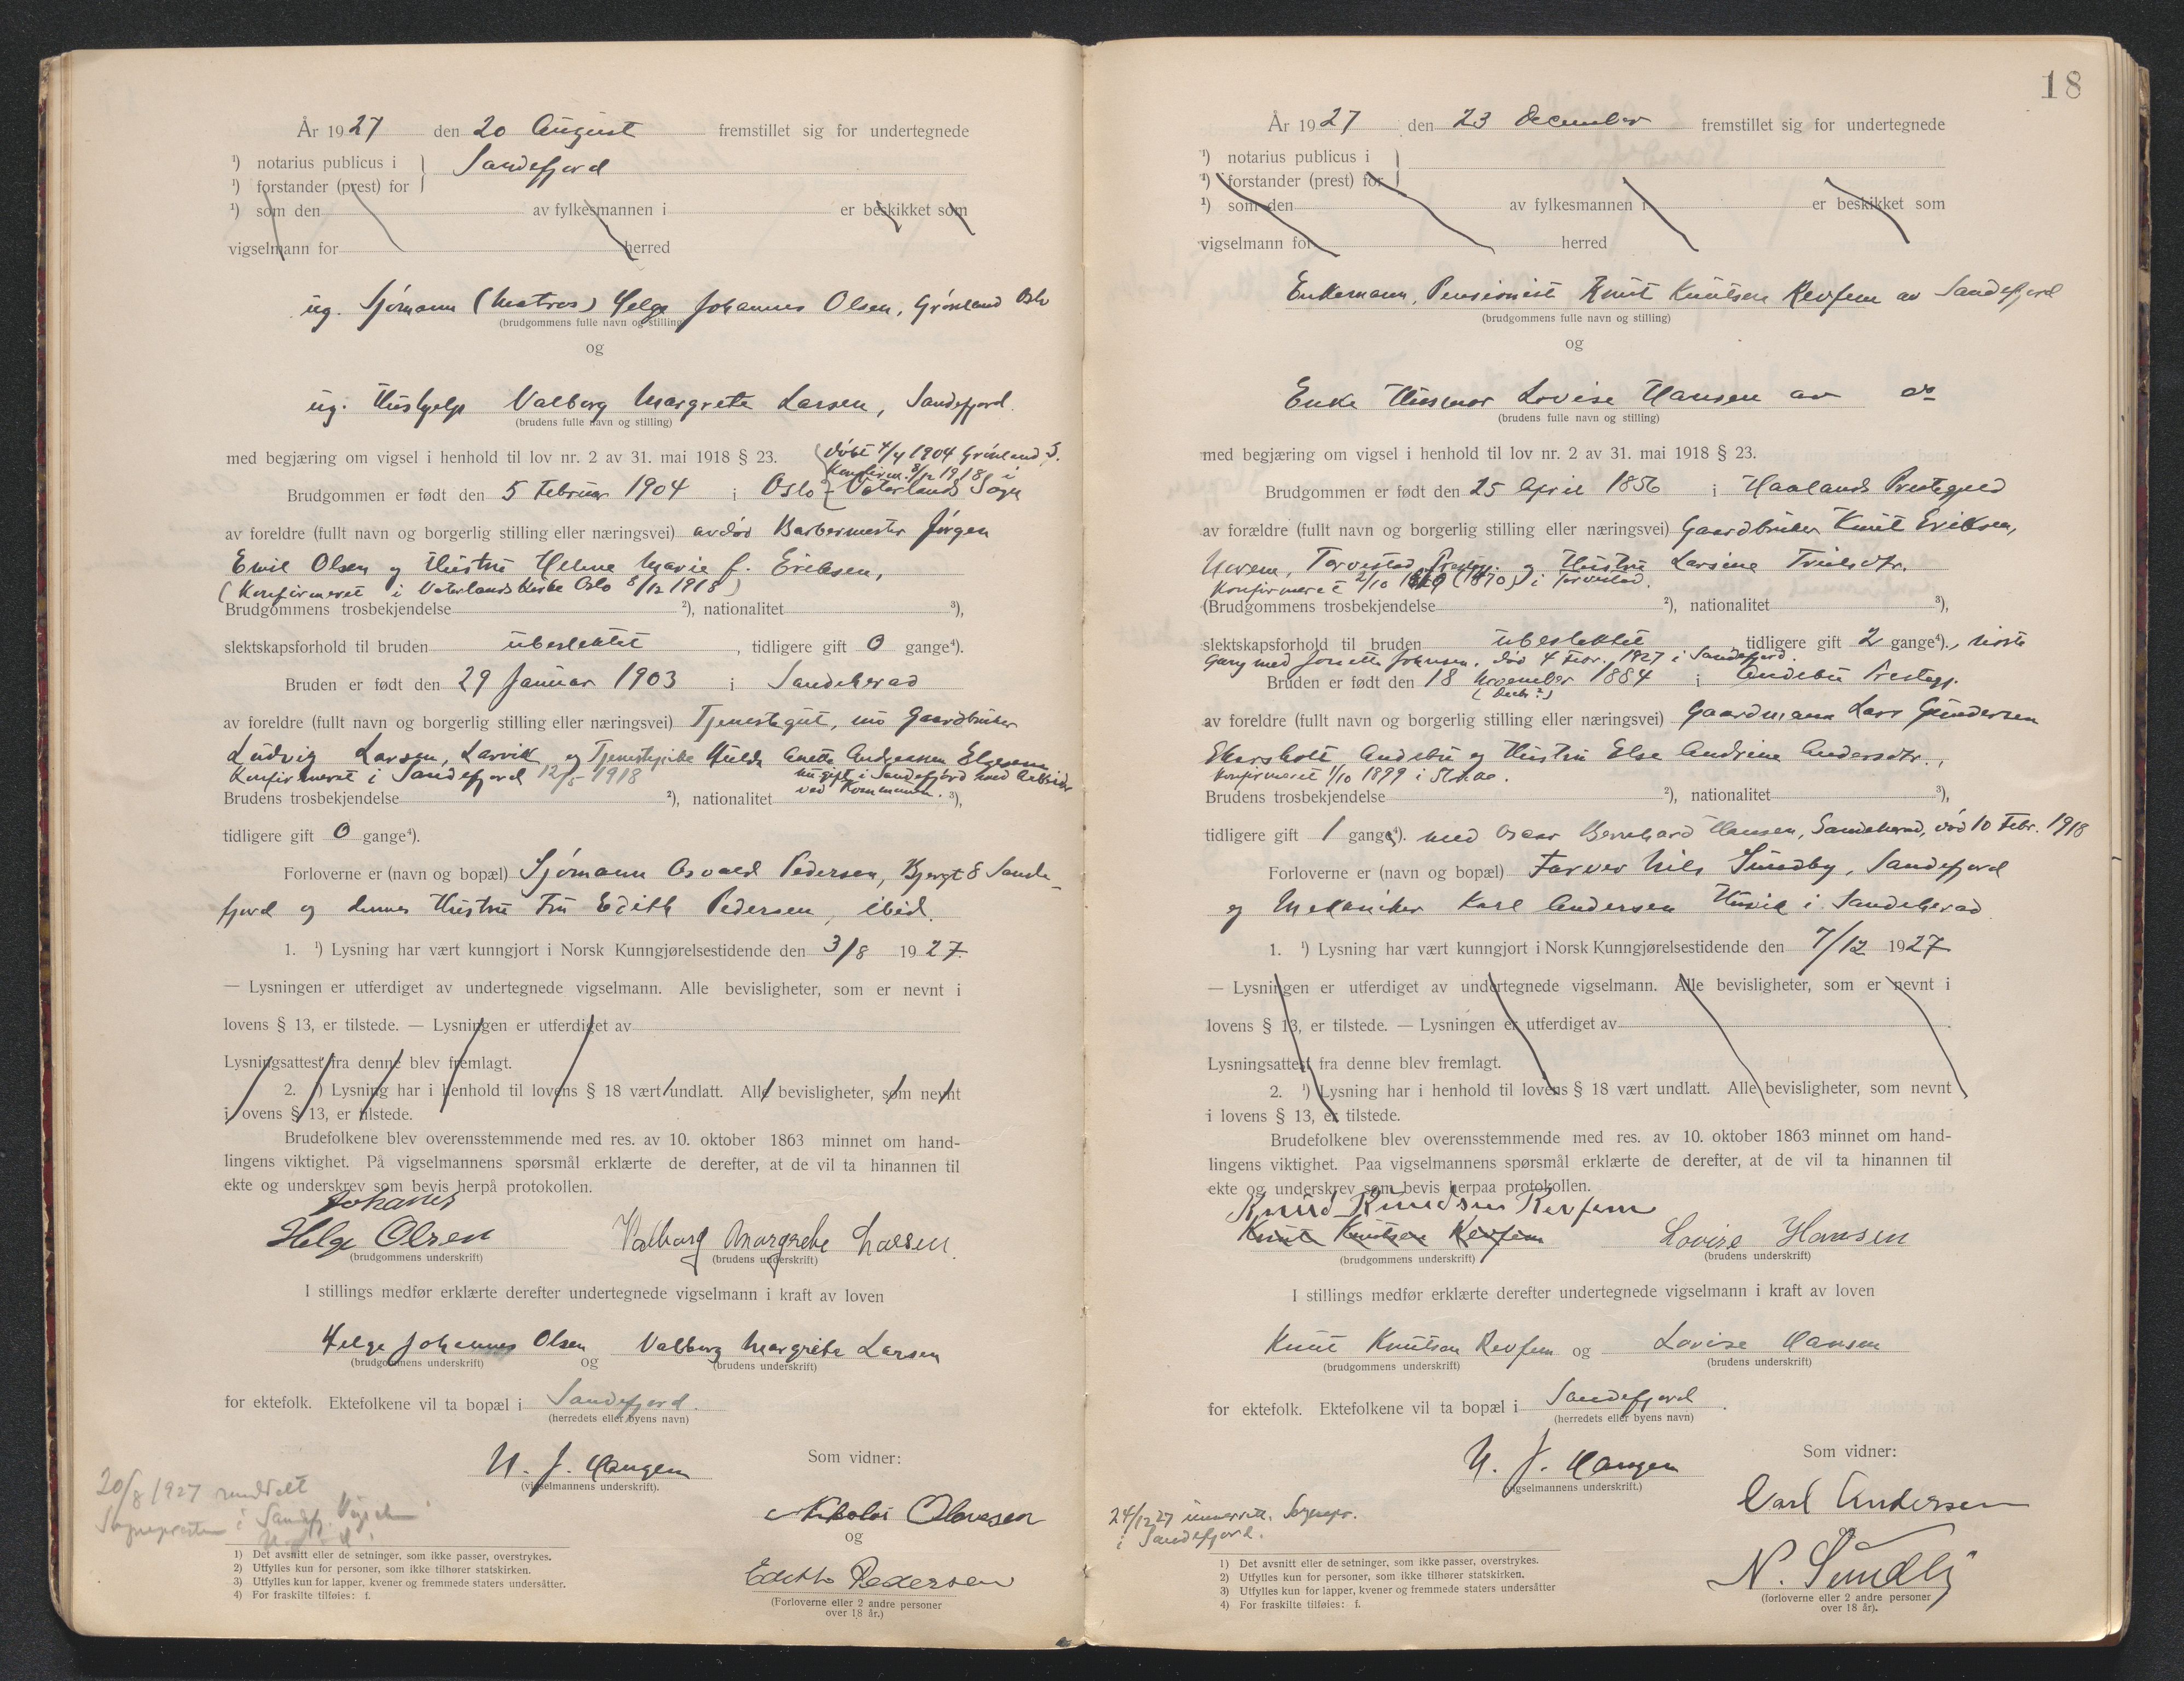 År 1927 den 20 August fremstillet sig for undertegnede
¹) notarius publicus i } Sandefjord
¹) forstander (prest) for
¹) som den av fylkesmannen i er beskikket som
vigselmann for herred
ug. Sjömann (Matros) Helge Johannes Olsen, Grönland Oslo
(brudgommens fulle navn og stilling)
og
ug. Hushjelp Valborg Margrete Larsen, Sandefjord.
(brudens fulle navn og stilling)
døbt 4/4 1904 Grönland S.
med begjæring om vigsel i henhold til lov nr. 2 av 31. mai 1918 § 23.
Konfirm. 8/12 1918 i
Brudgommen er født den 5 Februar 1904 i Oslo - Vaterlands Sogn
av foreldre (fullt navn og borgerlig stilling eller næringsvei) avdød Barbermester Jörgen
Emil Olsen og Hustru Helene Marie f. Eriksen,
(Konfirmeret i Vaterlands Kirke Oslo 8/12 1918)
Brudgommens trosbekjendelse ²), nationalitet ³),
slektskapsforhold til bruden ubeslektet, tidligere gift 0 gange⁴).
Bruden er født den 29 Januar 1903 i Sandeherad
av foreldre (fullt navn og borgerlig stilling eller næringsvei) Tjenestegut, nu Gaardbruker
Ludvig Larsen, Larvik og Tjenestepike Hulda Anette Andreassen
Konfirmeret i Sandefjord 12/5 1918 nu gift i Sandefjord med Arbeider
ved Kommunen.
Brudens trosbekjendelse ²), nationalitet ³),
tidligere gift 0 gange⁴).
Forloverne er (navn og bopæl) Sjömann Osvald Pedersen, Bjergt 8 Sande-
fjord og dennes Hustru Fru Edith Pedersen, ibid.
1. ¹) Lysning har vært kunngjort i Norsk Kunngjørelsestidende den 3/8 1927.
— Lysningen er utferdiget av undertegnede vigselmann. Alle bevisligheter, som er nevnt i
lovens § 13, er tilstede. — Lysningen er utferdiget av
Lysningsattest fra denne blev fremlagt.
2. ¹) Lysning har i henhold til lovens § 18 vært undlatt. Alle bevisligheter, som nevnt
i lovens § 13, er tilstede.
Brudefolkene blev overensstemmende med res. av 10. oktober 1863 minnet om hand-
lingens viktighet. På vigselmannens spørsmål erklærte de derefter, at de vil ta hinannen til
ekte og underskrev som bevis herpå protokollen.
Johanes
Helge Olsen Valborg Margrethe Larsen.
(brudgommens underskrift) (brudens underskrift)
I stillings medfør erklærte derefter undertegnede vigselmann i kraft av loven
Helge Johannes Olsen og Valborg Margrete Larsen
(brudgommens underskrift) (brudens underskrift)
for ektefolk. Ektefolkene vil ta bopæl i Sandefjord.
(herredets eller byens navn)
H. J. Haugen
(vigselmannens underskrift).
Som vidner:
20/8 1927 meddelt
Sognepresten i Sandefj.
Nikolai Olavesen
og
Edith Pedersen
(Forloverne eller 2 andre personer
over 18 år.)
1) Det avsnitt eller de setninger, som ikke passer, overstrykes.
2) Utfylles kun for personer, som ikke tilhører statskirken.
3) Utfylles kun for lapper, kvener og fremmede staters undersåtter.
4) For fraskilte tilføies: f.
18
År 1927 den 23 December fremstillet sig for undertegnede
¹) notarius publicus i }
¹) forstander (prest) for
¹) som den av fylkesmannen i er beskikket som
vigselmann for herred
Enkemann, Pensionist Knut Knutsen Revfem av Sandefjord
(brudgommens fulle navn og stilling)
og
Enke Husmor Lovise Hansen av do
(brudens fulle navn og stilling)
med begjæring om vigsel i henhold til lov nr. 2 av 31. mai 1918 § 23.
Brudgommen er født den 25 April 1856 i Haalands Prestegjeld
av forældre (fullt navn og borgerlig stilling eller næringsvei) Gaardbruker Knut Eriksen,
Torvestad Prestegj. og Hustru Larsine
Konfirmeret 2/10 (1870) i Torvestad.
(Brudgommens trosbekjendelse ²), nationalitet ³),
slektskapsforhold til bruden ubeslektet tidligere gift 2 gange⁴)., siste
Gang med Jonette Johnsen, död 4 Febr. 1927 i Sandefjord.
Bruden er født den 18 November 1884 i Andebu Prestegj.
(Decbr?)
av foreldre (fullt navn og borgerlig stilling eller næringsvei) Gaardmann Lars Gundersen
Skarsholt, Andebu og Hustru Else Andrine Andersdtr.,
Konfirmeret 1/10 1899 i
Brudens trosbekjendelse ²), nationalitet ³),
tidligere gift 1 gange⁴). med Oscar Bernhard Hansen, Sandeherad, död 10 Febr. 1918
Forloverne er (navn og bopæl) Farver Nils Sundby, Sandefjord
og Mekaniker Karl Andersen Husvik i Sandeherad
1. ¹) Lysning har vært kunngjort i Norsk Kunngjørelsestidende den 7/12 1927
— Lysningen er utferdiget av undertegnede vigselmann. Alle bevisligheter, som er nevnt i
lovens § 13, er tilstede. — Lysningen er utferdiget av
Lysningsattest fra denne blev fremlagt.
2. ¹) Lysning har i henhold til lovens § 18 vært undlatt. Alle bevisligheter, som nevnt
i lovens § 13, er tilstede.
Brudefolkene blev overensstemmende med res. av 10. oktober 1863 minnet om hand-
lingens viktighet. Paa vigselmannens spørsmål erklærte de derefter, at de vil ta hinannen til
ekte og underskrev som bevis herpaa protokollen.
Knud Knudsen Revfem
Knut Knutsen Revfem Lovise Hansen
(brudgommens underskrift) (brudens underskrift)
I stillings medfør erklærte derefter undertegnede vigselmann i kraft av loven
Knut Knutsen Revfem og Lovise Hansen
(brudgommens underskrift) (brudens underskrift)
for ektefolk. Ektefolkene vil ta bopæl i Sandefjord.
(herredets eller byens navn)
H. J. Haugen
(vigselmannens underskrift.)
Som vidner:
24/12 27 underrett. Sognepr.
i Sandefjord.
Carl Andersen
N. Sundby
(forloverne eller 2 andre personer
over 18 år).
1) Det avsnitt eller de setninger, som ikke passer, overstrykes.
2) Utfylles kun for personer, som ikke tilhører statskirken.
3) Utfylles kun for lapper, kvener og fremmede staters undersåtter
4) For fraskilte tilføies: f.